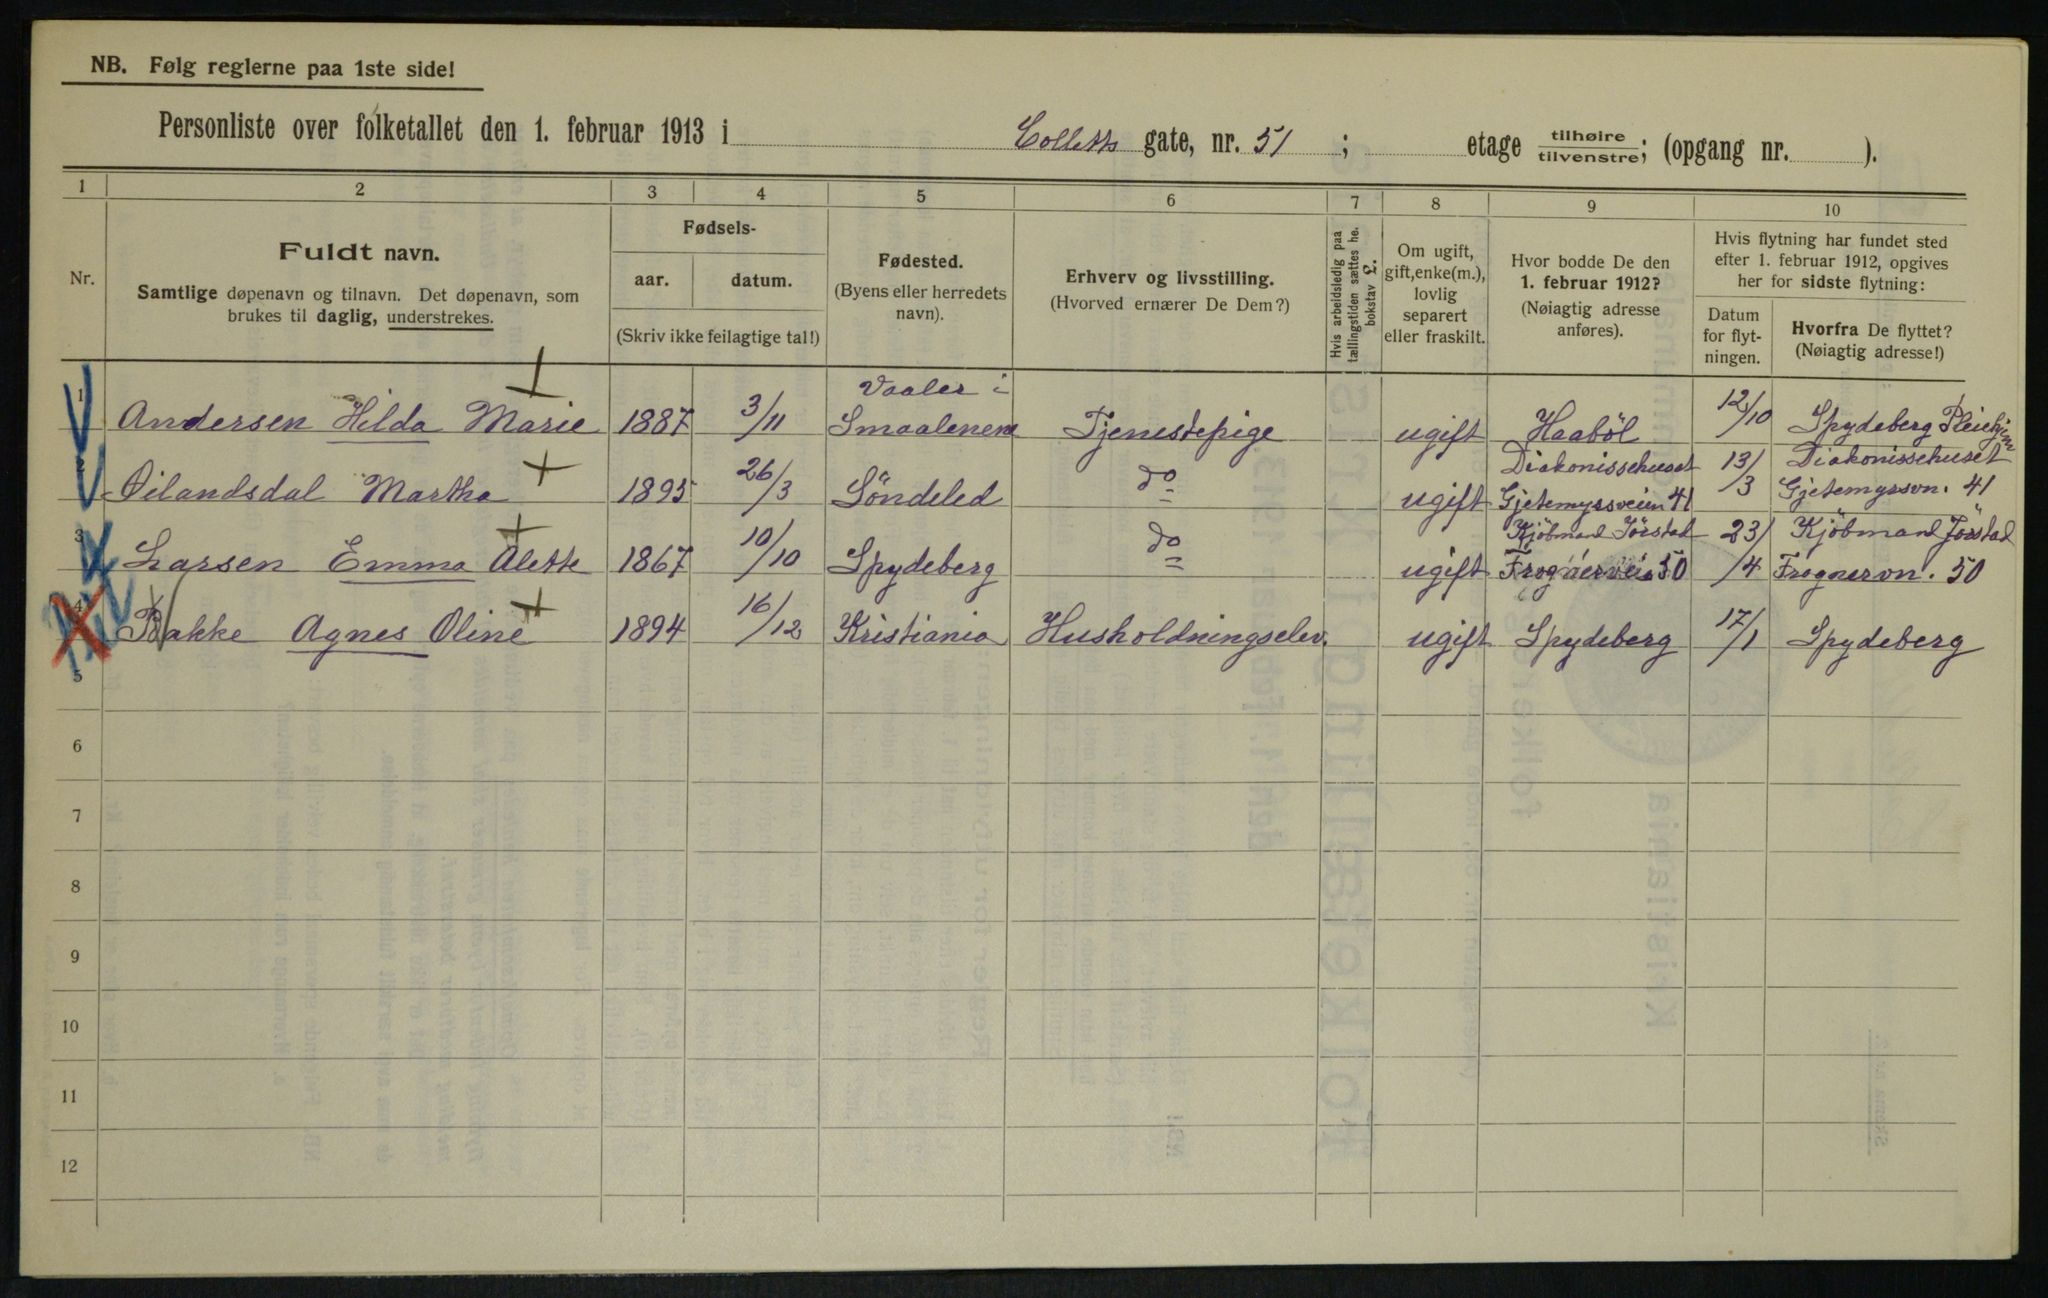 NB. Følg reglerne paa 1ste side!
Personliste over folketallet den 1. februar 1913 i Colletts gate, nr. 51 ; etage tilhøire tilvenstre; (opgang nr. ).
1 2 3 4 5 6 7 8 9 10
Nr.
Fuldt navn.
Samtlige døpenavn og tilnavn. Det døpenavn, som
brukes til daglig, understrekes.
Fødsels-
aar. datum.
(Skriv ikke feilagtige tal!)
Fødested.
(Byens eller herredets
navn).
Erhverv og livsstilling.
(Hvorved ernærer De Dem?)
Hvis arbeidsledig paa
tællingstiden sættes he.
bokstav L.
Om ugift,
gift, enke(m.),
lovlig
separert
eller fraskilt.
Hvor bodde De den
1. februar 1912?
(Nøiagtig adresse
anføres).
Hvis flytning har fundet sted
efter 1. februar 1912, opgives
her for sidste flytning:
Datum
for flyt-
ningen.
Hvorfra De flyttet?
(Nøiagtig adresse!)
Vaaler i
1 Andersen Hilda Marie 1887 3/11 Smaalenene Tjenestepige ugift Haaböl 12/10 Spydeberg Pleiehjem
Diakonissehuset Diakonissehuset
2 Öilandsdal Martha 1895 26/3 Söndeled do ugift Gjetemyrsveien 41 13/3 Gjetemyrsvn. 41
Kjöbmand Jörstad Kjöbmand Jörstad
3 Larsen Emma Alette 1867 10/10 Spydeberg do ugift Frognervei 50 23/4 Frognervn. 50
4 Bakke Agnes Oline 1894 16/12 Kristiania Husholdningselev. ugift Spydeberg 17/1 Spydeberg
5
6
7
8
9
10
11
12